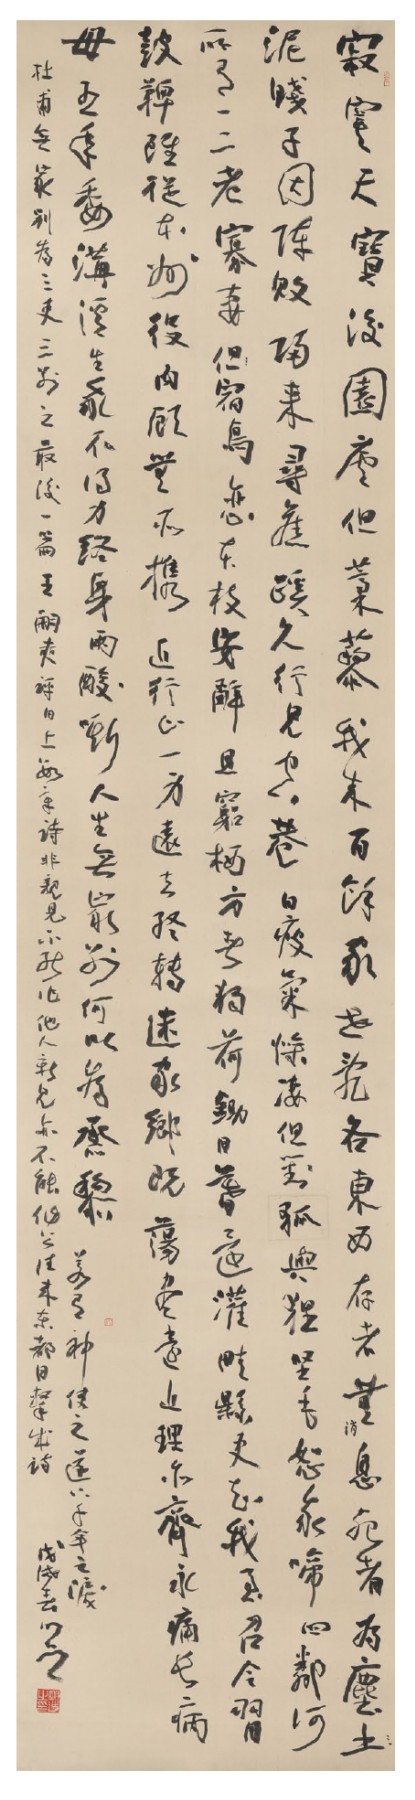 寂寞天寶後園廬但蒿藜我里百餘家世亂各東西存者無消息死者為塵土
泥賤子因陣敗歸來尋舊蹊久行見空巷日瘦氣慘凄但對狐與狸豎毛怒我啼四鄰何
所有一二老寡妻但宿鳥戀本枝安辭且窮栖方春獨荷鋤日暮還灌畦縣吏知我至召令習
鼓鞞雖從本州役內顧無所攜近行止一身遠去終轉迷家鄉既蕩盡遠近理亦齊永痛長病
母五年委溝谿生我不得力終身兩酸嘶人生無家別何以為蒸黎
杜甫無家別為三吏三別之最後一篇王嗣奭評曰上數章詩非親見不能作他人雖見亦不能作公往來東都目擊成詩
若有神使之遂下千年之淚
戊戌春